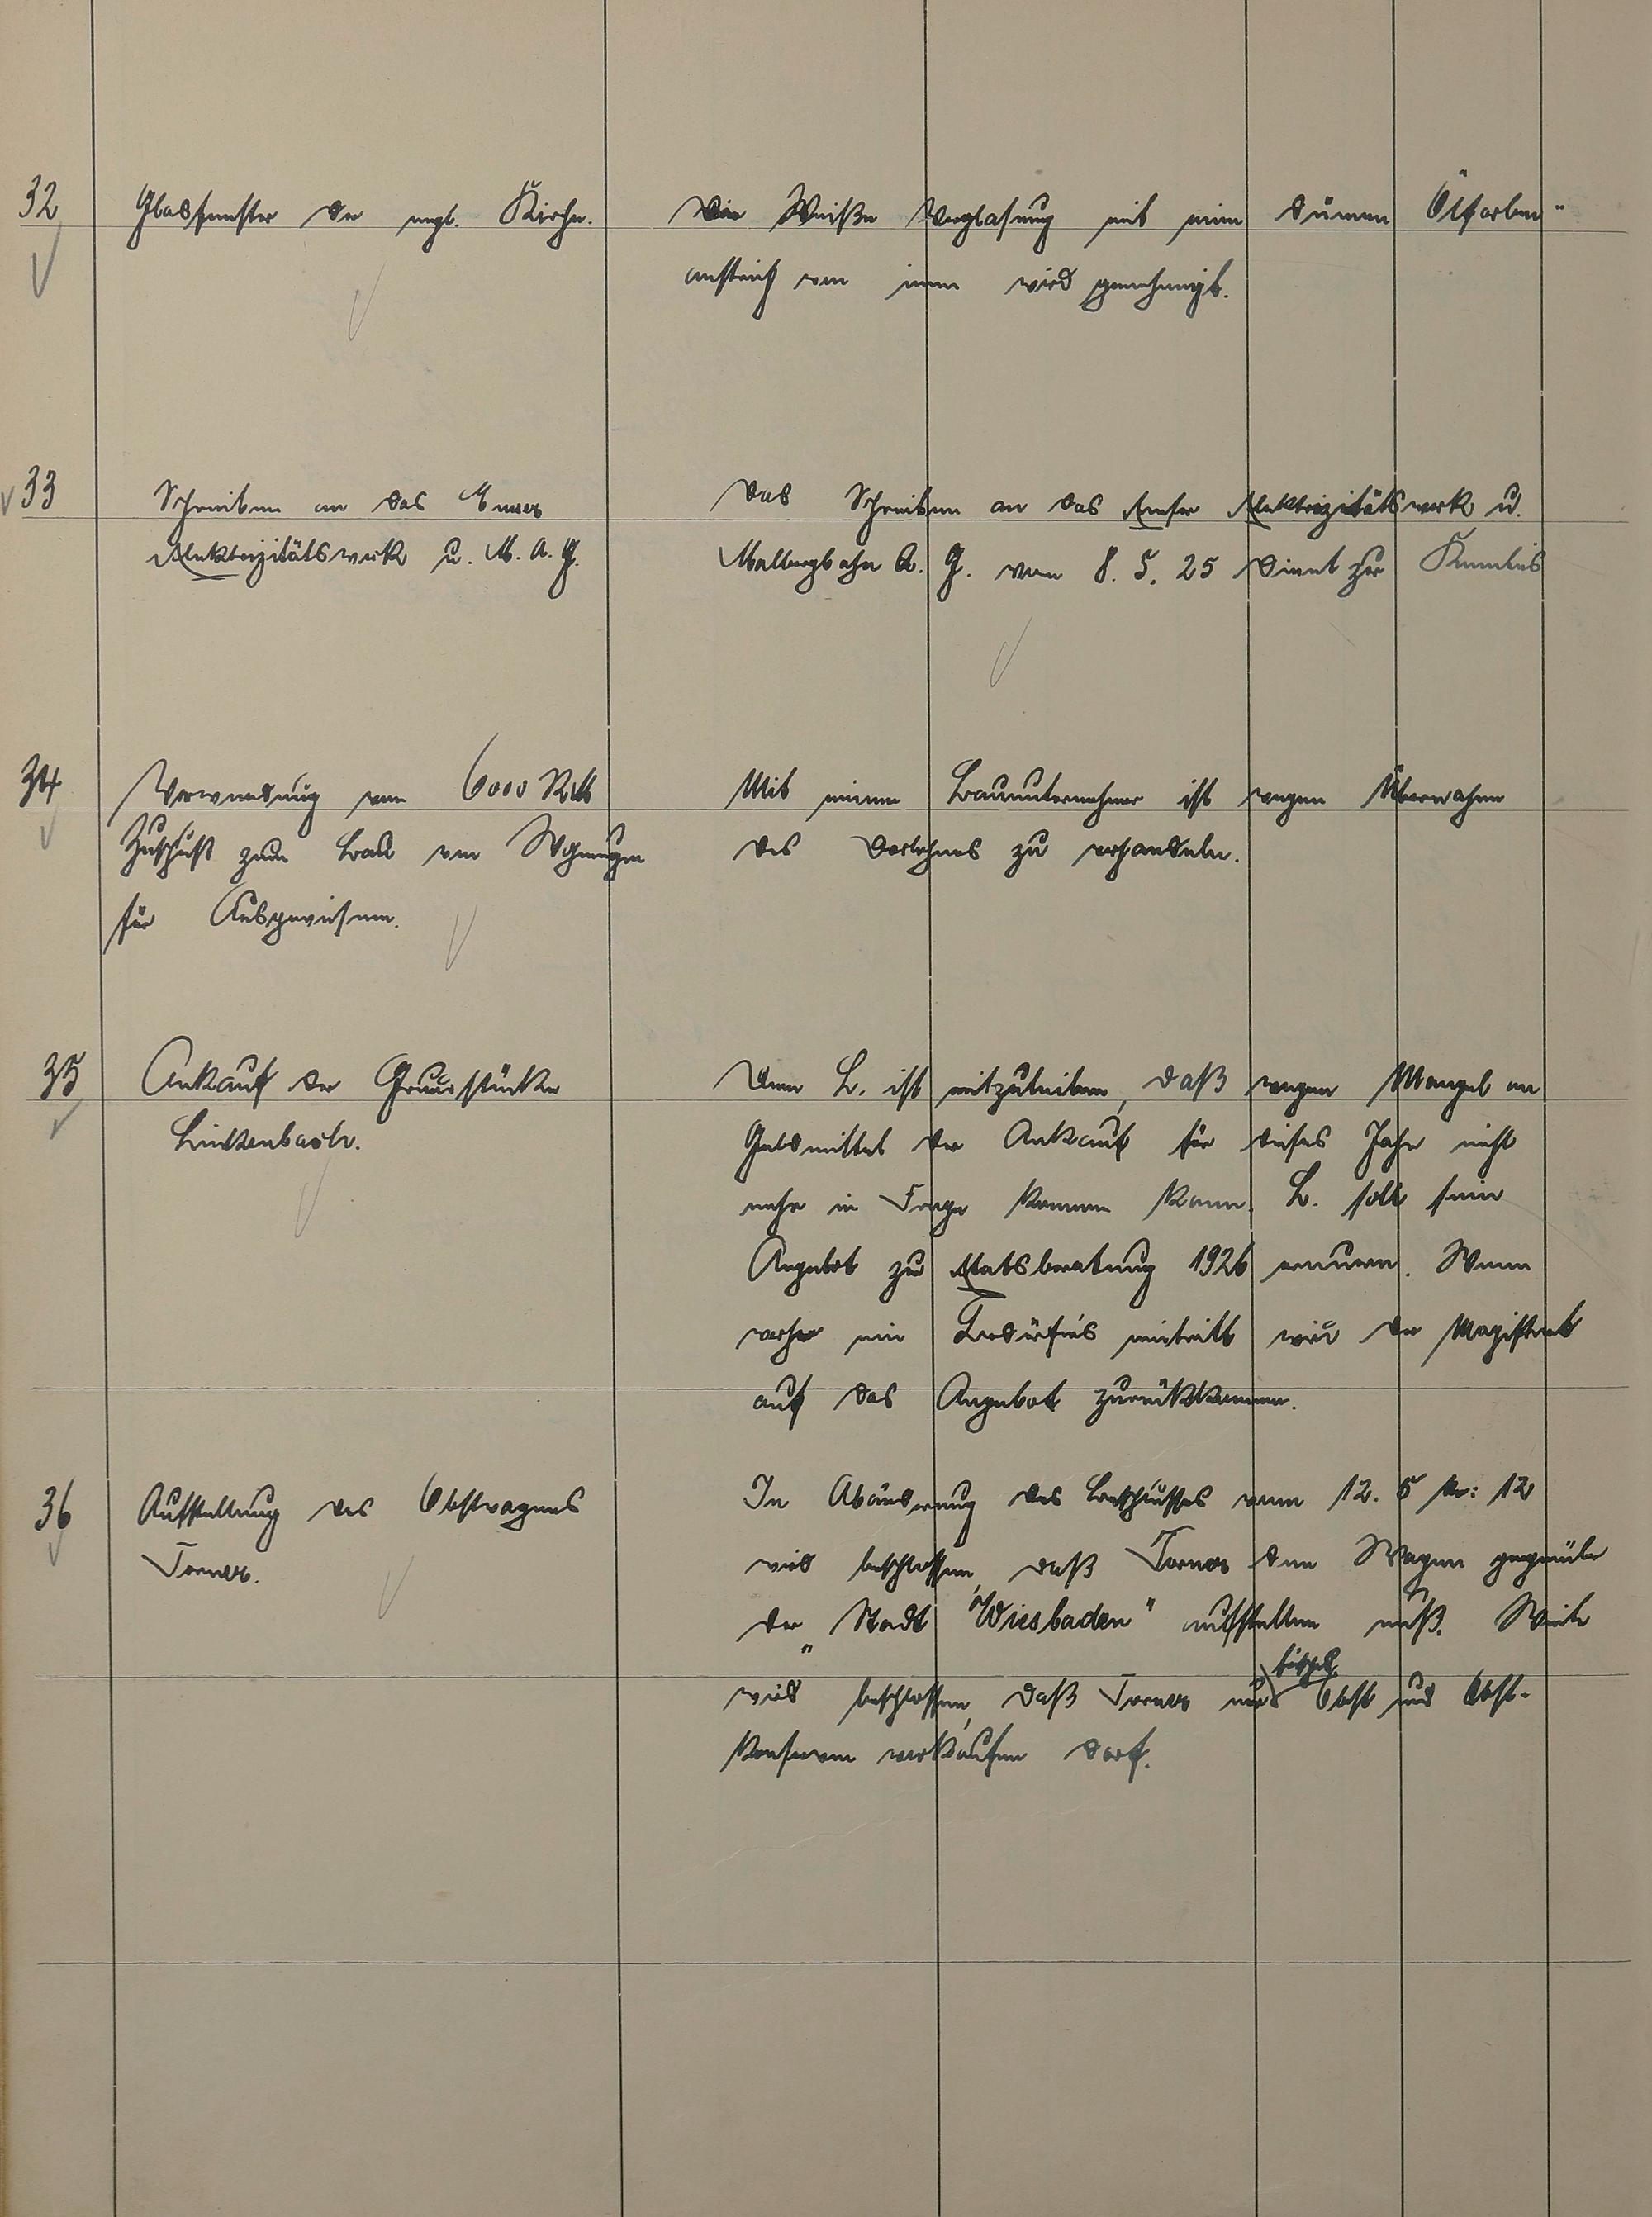 32
Glasfenster der engl. Kirche.
Die Weiße Verglasung mit einem dünnen Ölfarben-
anstrich von innen wird genehmigt.
33
Schreiben an das Emser
Elektrizitätswerk u. M. A. G.
Das Schreiben an das Emser Elektrizitätswerk u.
Malbergbahn A. G. vom 8. 5. 25 dient zur Kenntnis
34
Verwendung von 6000 RM
Zuschuß zum Bau von Wohnungen
für Ausgewiesene.
Mit einem Bauunternehmer ist wegen Übernahme
des Darlehnes zu verhandeln.
35
Ankauf der Grundstücke
Linkenbach.
Dem L. ist mitzuteilen, daß wegen Mangel an
Geldmittel der Ankauf für dieses Jahr nicht
mehr in Frage kommen kann. L. soll sein
Angebot zur Etatsberatung 1926 erneuern. Wenn
vorher ein Bedürfnis eintritt wird der Magistrat
auf das Angebot zurückkommen.
36
Aufstellung des Obstwagens
Forner.
In Abänderung des Beschlusses vom 12. 5 Nr: 12
wird beschlossen, daß Forner den Wagen gegenüber
der "Stadt Wiesbaden" aufstellen muß. Weiter
wird beschlossen, daß Forner nur Obst und Obst-
konserven verkaufen darf.